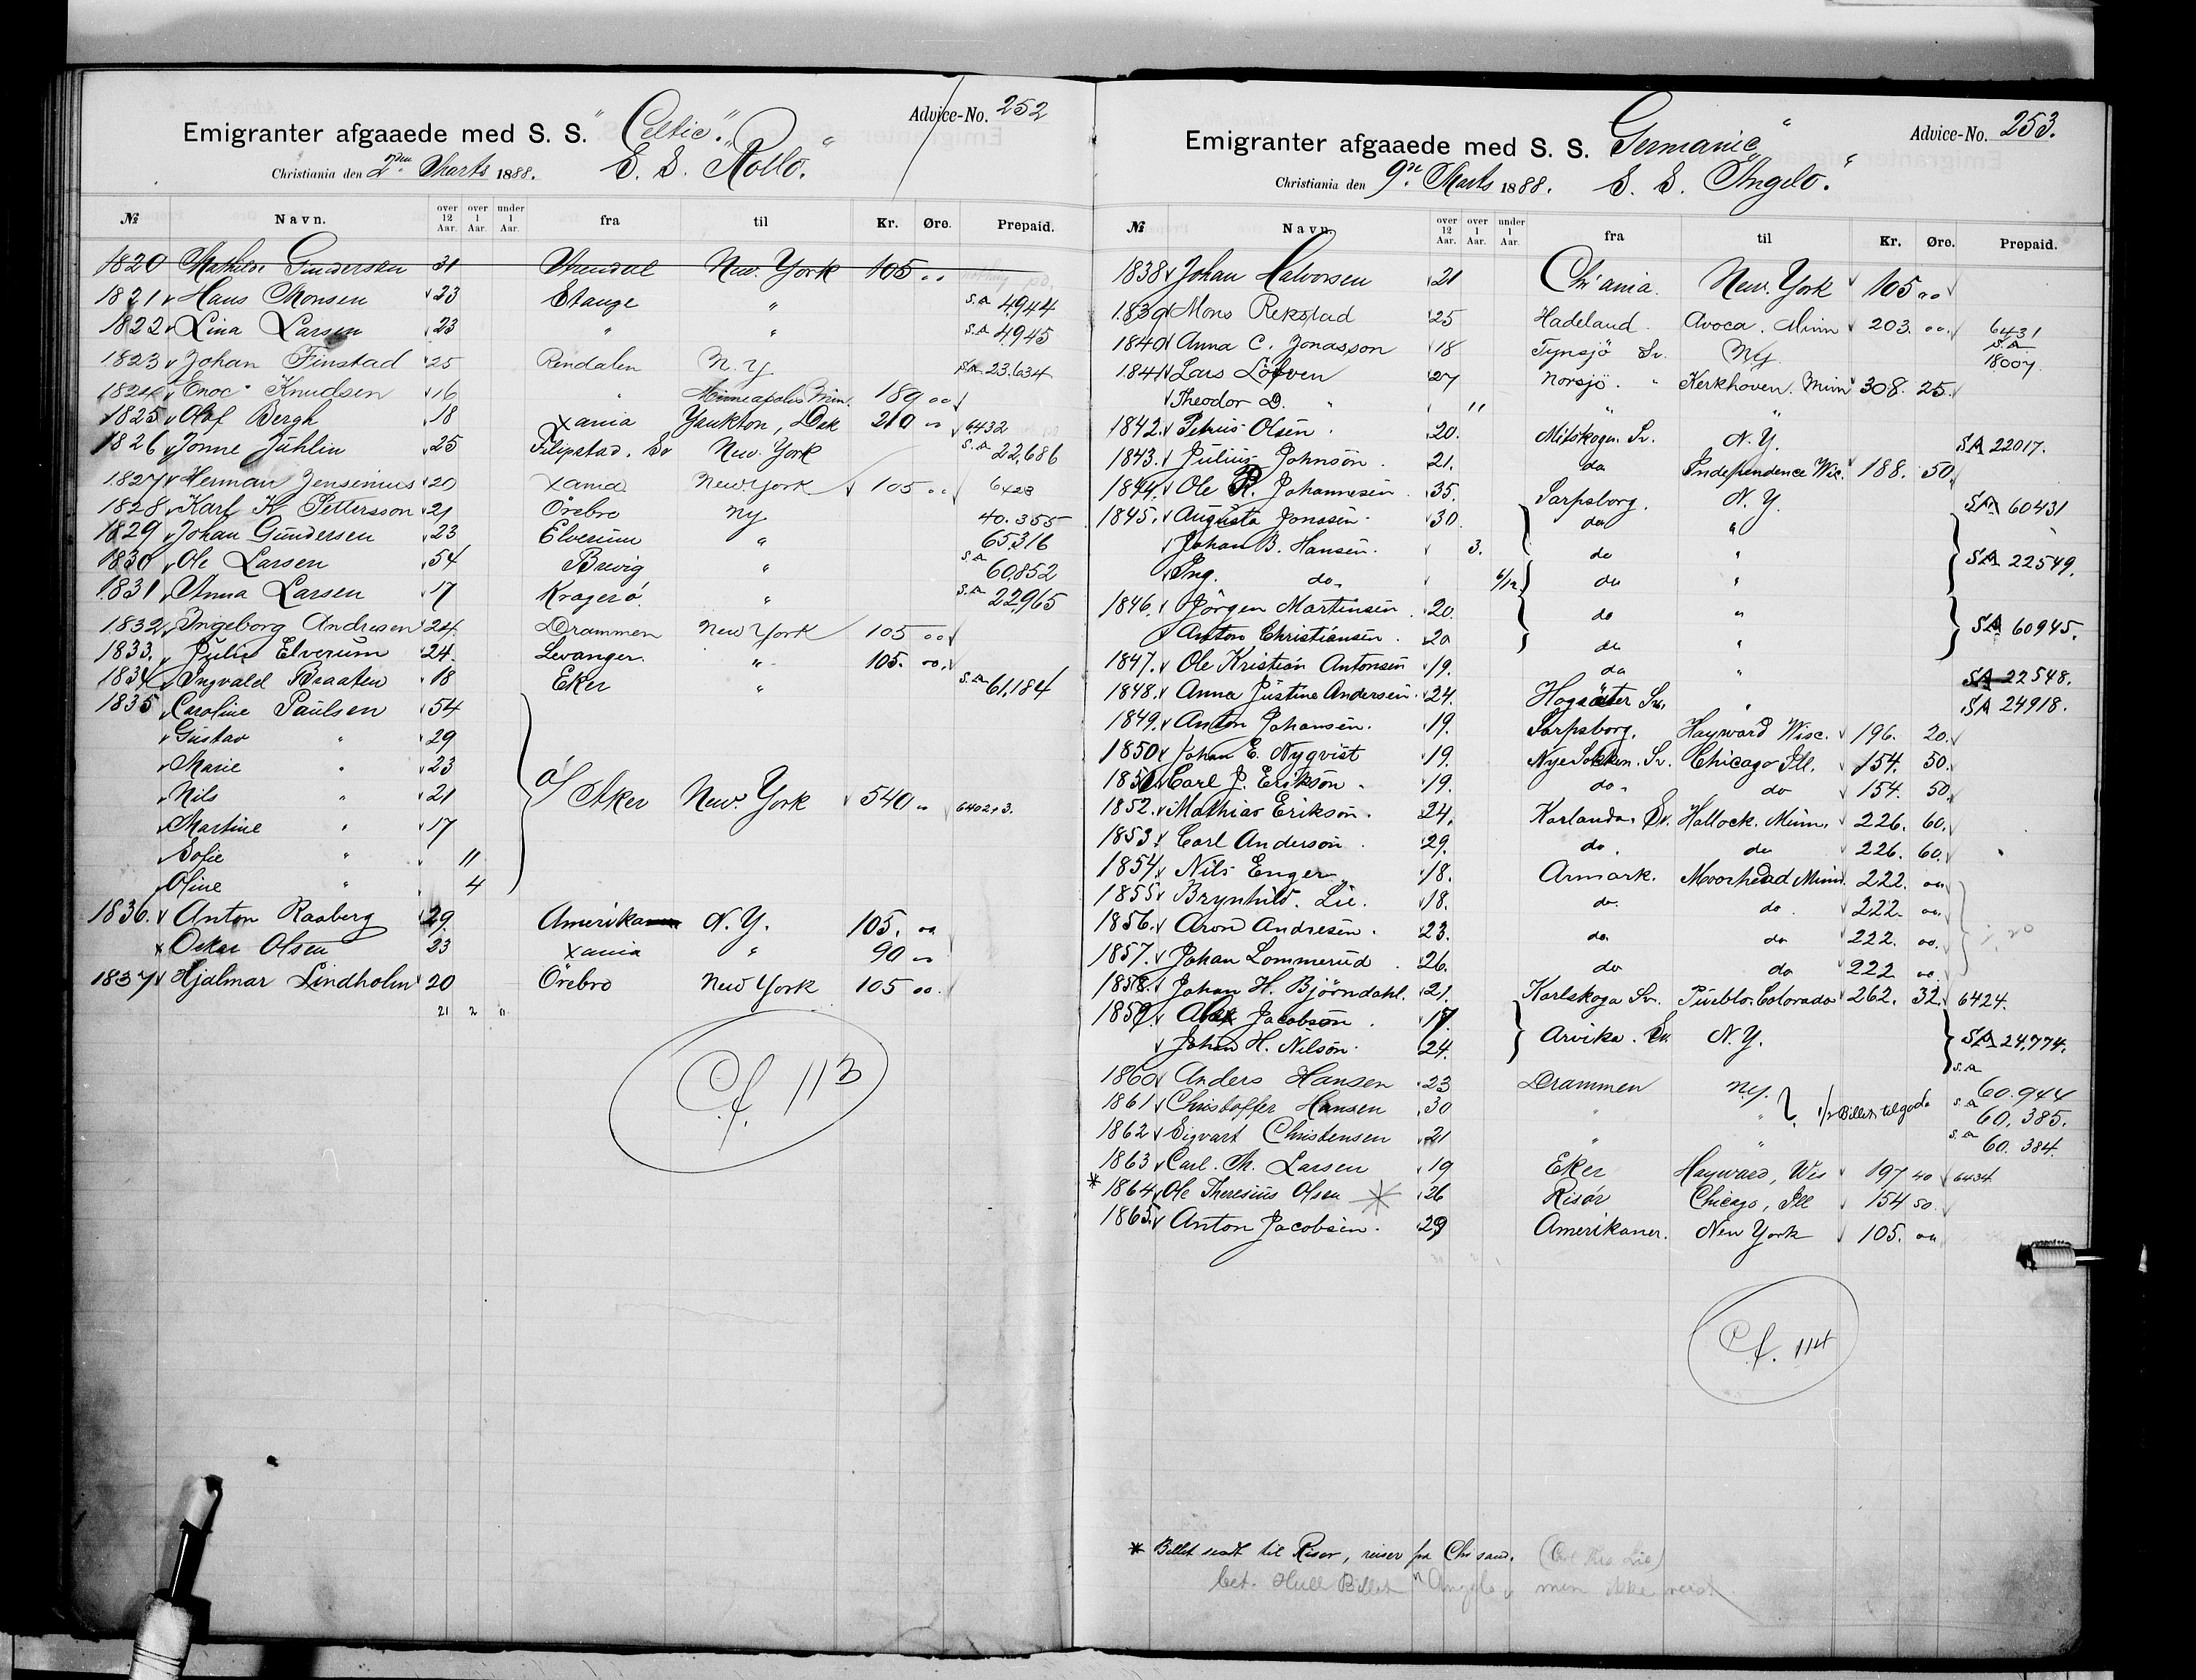 Advice-No. 252
Emigranter afgaaede med S. S. "Celtic".
Christiania den 2den Marts 1888. S. S. "Rollo."
№ Navn. over 12 Aar. over 1 Aar. under 1 Aar. fra til Kr. Øre. Prepaid.
1820 Mathilde Gundersen 31 Arendal New. York 105 "
1821 Hans Monsen 23 Stange " S.A 4944
1822 Lina Larsen 23 " " S.A 4945
1823 Johan Finstad 25 Rendalen N.Y. SA 23.634
1824 Enoc Knudsen 16 " Minneapolis Min. 189 00
1825 Olaf Bergh 18 Xania Yankton, Dak 210 " 6432
1826 Jonne Jühlin 25 Filipstad. Sv New. York S.A 22,686
1827 Herman Jensenius 20 Xania New York 105 " 6428
1828 Karl K. Pettersson 21 Örebro NY. 40.355
1829 Johan Gundersen 23 Elverum " 65316
1830 Ole Larsen 54 Brevig " S.A 60852
1831 Anna Larsen 17 Kragerö. " S.A 22965
1832 Ingeborg Andresen 24 Drammen New York 105 00
1833. Julie Elverum 24. Levanger. " 105. 00.
1834 Ingvald Braaten 18 Eker " S.A 61,184
1835 Caroline Paulsen 54
Gustav " 29
Marie " 23
Nils " 21 Ö/ Aker New. York 540 " 6402+3.
Martine " 17
Sofie " 11
Oline " 4
1836. Anton Raaberg 29. Amerika N.Y. 105. 00
x Oskar Olsen 23 Xania " 90 "
1837 Hjalmar Lindholm 20 Örebro New York 105 00.
21 2 "
Cf. 113
Advice-No. 253.
Emigranter afgaaede med S. S. "Germanic"
Christiania den 9de Marts 1888. S. S. "Angelo."
№ Navn. over 12 Aar. over 1 Aar. under 1 Aar. fra til Kr. Øre. Prepaid.
1838 Johan Halvorsen 21 Chr'ania. New. York 105 00
1839 Mons Rekstad 25 Hadeland. Avoca. Minn 203. 00. 6431
1840 Anna C. Jonasson 18 Tynsjö Sv. NY. S.A 18007
1841 Lars Löfven 27 Norsjö. " Kerkhoven. Minn 308. 25.
Theodor D. " 11 " "
1842. Petrus Olsen. 20. Mitskogen. Sv. N.Y. SA 22017.
1843. Julius Johnson. 21. do Independence Wic. 188. 50.
1844. Ole R. Johannesen. 35. Sarpsborg. N.Y. SA 60431
1845. Augusta Jonasen. 30. do "
Johan B. Hansen. 3. do " SA 22549.
Ing. do. 6/12 do "
1846. Jörgen Martinsen. 20. do " SA 60945.
Anton Christiansen. 20 do "
1847. Ole Kristian Antonsen 19. do " SA 22548.
1848. Anna Justine Andersen. 24. Hogsäter Sv. " SA 24918.
1849. Anton Johansen. 19. Sarpsborg. Hayward Wisc. 196. 20.
1850 Johan E. Nygvist 19. Nye Socken. Sv. Chicago Ill. 154. 50.
1851 Carl J. Erikson. 19. do. do 154. 50.
1852. Mathias Erikson. 24. Karlanda. Sv. Hallock. Minn. 226. 60.
1853. Carl Anderson. 29. do. do 226. 60.
1854. Nils Enger 18. Armark. Moorhead Minn. 222. 00.
1855 Brynhild. Lie. 18. do. do. 222. 00.
1856. Aron Andresen. 23. do. do 222. 00.
1857. Johan Lommerud. 26. do do 222. 00
1858. Johan H. Björndahl. 21. Karlskoga Sv. Pueblo. Colorado 262. 32. 6424.
1859. Alex Jacobson. 17. Arvika. Sv. N.Y. SA 24,774.
Johan H. Nilson. 24.
1860 Anders Hansen 23 Drammen NY. S.A 60.944
1861 Christoffer Hansen 30 " " 1/2 Billet tilgode S.A 60,385.
1862 Sigvart Christensen 21 " " S.A 60.384.
1863 Carl. M. Larsen 19 Eker Hayward, Wis 197 40 6434
* 1864 Ole Theresius Olsen * 26 Risör Chicago, Ill 154 50.
1865. Anton Jacobsen. 29 Amerikaner. New York 105. 00
Cf. 114
* Billet sendt til Risør, reiser fra Chrsand.
bet. Hull Billet "Angelo" men ikke reist